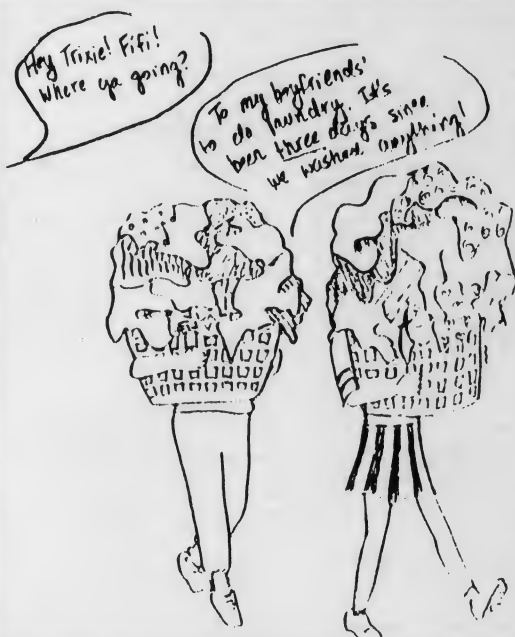 Hey Trixie! Fifi!
Where ya going?
To my boyfriends'
to do laundry. It's
been three days since
we washed anything!